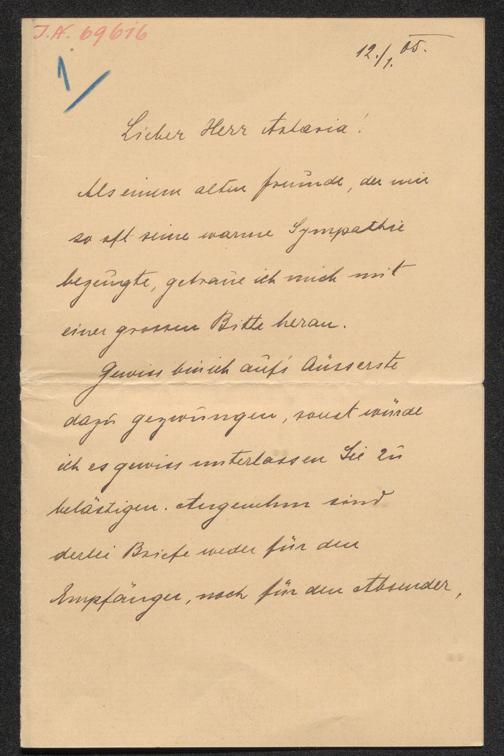 J.N. 69616
1
12./1. 05.
Lieber Herr Astasia!
Als einem alten Freunde, der mir
so oft seine warme Sympathie
bezeugte, getraue ich mich mit
einer grossen Bitte heran.
Gewiss bin ich aufs Äusserste
dazu gezwungen, sonst würde
ich es gewiss unterlassen Sie zu
belästigen. Angenehm sind
derlei Briefe weder für den
Empfänger, noch für den Absender,